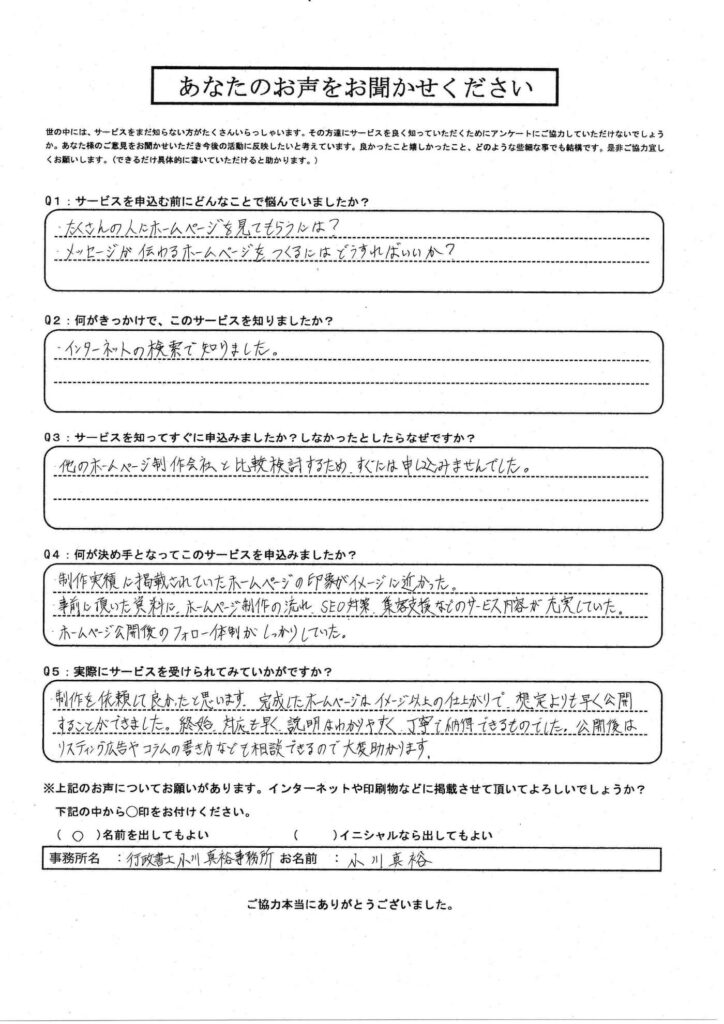 あなたのお声をお聞かせください
世の中には、サービスをまだ知らない方がたくさんいらっしゃいます。その方達にサービスを良く知っていただくためにアンケートにご協力していただけないでしょう
か。あなた様のご意見をお聞かせいただき今後の活動に反映したいと考えています。良かったこと嬉しかったこと、どのような些細な事でも結構です。是非ご協力宜し
くお願いします。(できるだけ具体的に書いていただけると助かります。)
Q1:サービスを申込む前にどんなことで悩んでいましたか?
・たくさんの人にホームページを見てもらうには?
・メッセージが伝わるホームページをつくるにはどうすればいいか?
Q2:何がきっかけで、このサービスを知りましたか?
・インターネットの検索で知りました。
Q3:サービスを知ってすぐに申込みましたか?しなかったとしたらなぜですか?
・他のホームページ制作会社と比較検討するため、すぐには申し込みませんでした。
Q4:何が決め手となってこのサービスを申込みましたか?
・制作実績に掲載されていたホームページの印象がイメージに近かった。
・事前に頂いた資料に、ホームページ制作の流れ、SEO対策、集客支援などのサービス内容が充実していた。
・ホームページ公開後のフォロー体制がしっかりしていた。
Q5:実際にサービスを受けられてみていかがですか?
・制作を依頼して良かったと思います。完成したホームページはイメージ以上の仕上がりで、想定よりも早く公開
することができました。終始、対応も早く、説明はわかりやすく、丁寧で納得できるものでした。公開後は
リスティング広告やコラムの書き方なども相談できるので大変助かります。
※上記のお声についてお願いがあります。インターネットや印刷物などに掲載させて頂いてよろしいでしょうか?
下記の中から〇印をお付けください。
( ○ )名前を出してもよい ( )イニシャルなら出してもよい
事務所名 :行政書士小川真裕事務所 お名前 : 小川真裕
ご協力本当にありがとうございました。